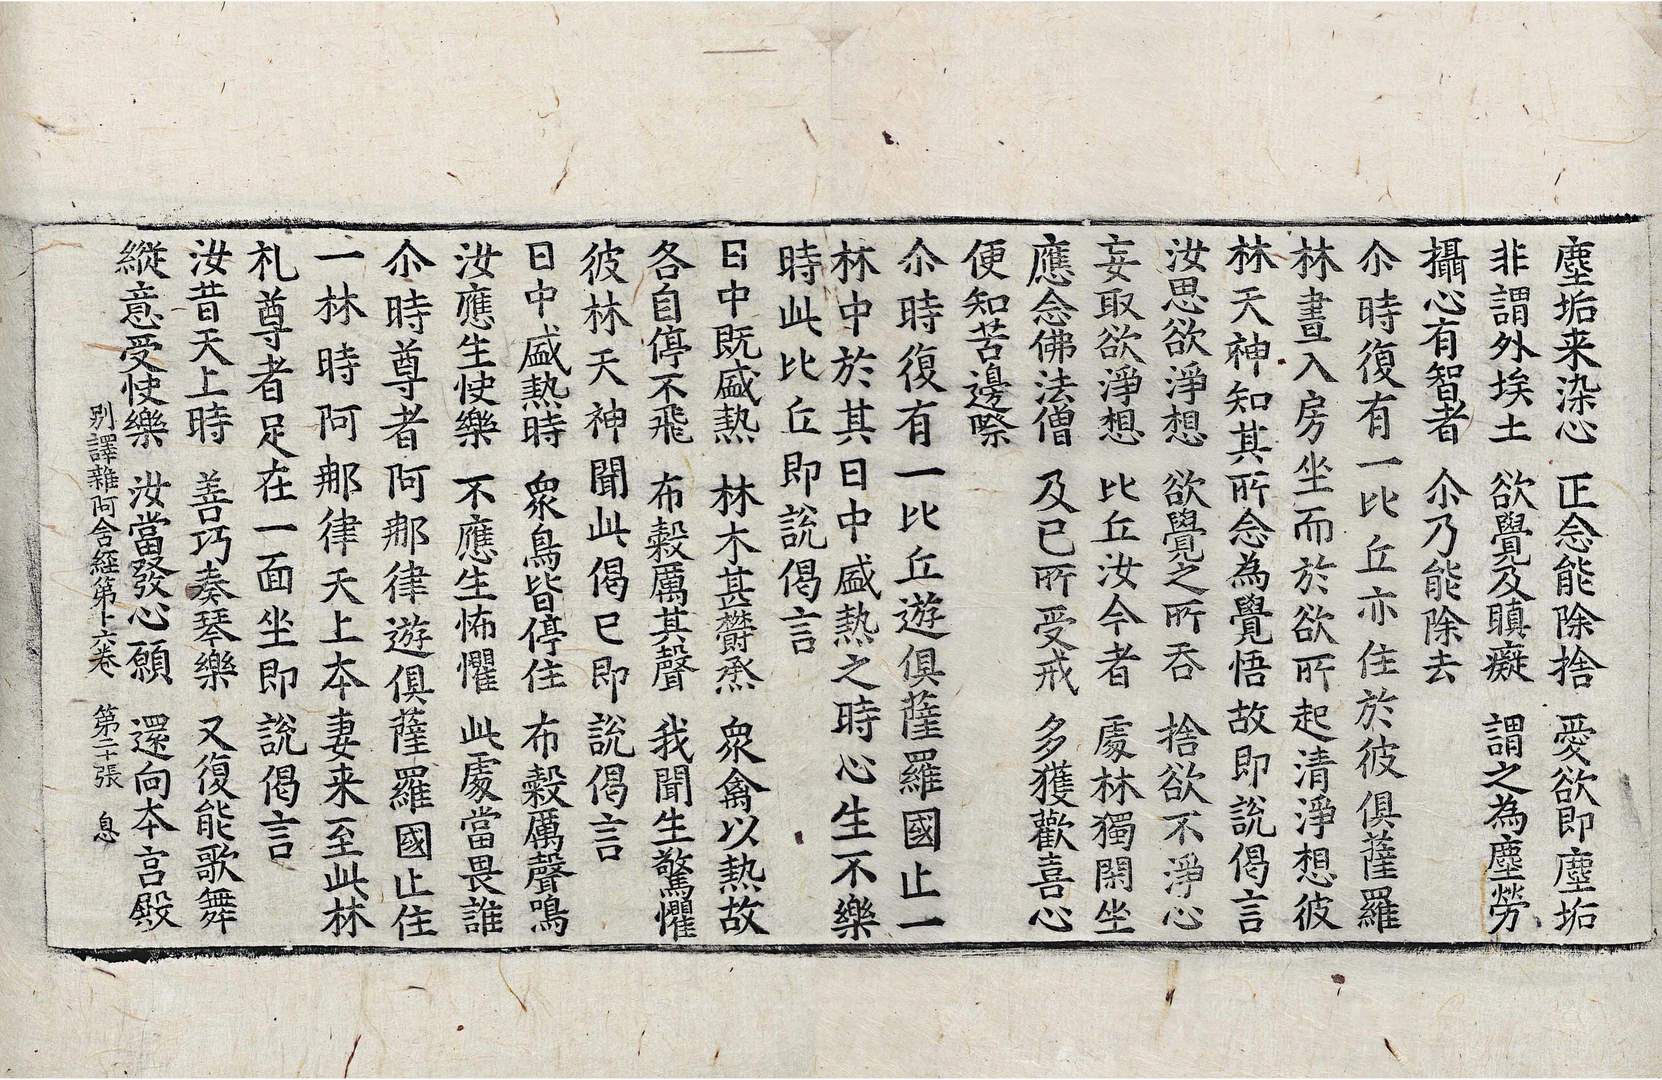 塵垢来染心　正念能除捨　愛欲即塵垢
非謂外埃土　欲覺及瞋癡　謂之為塵勞
攝心有智者　尒乃能除去
尒時復有一比丘亦住於彼俱薩羅
林晝入房坐而於欲所起清淨想彼
林天神知其所念為覺悟故即說偈言
汝思欲淨想　欲覺之所吞　捨欲不淨心
妄取欲淨想　比丘汝今者　處林獨閑坐
應念佛法僧　及已所受戒　多獲歡喜心
便知苦邊際
尒時復有一比丘遊俱薩羅國止一
林中於其日中盛熱之時心生不樂
時此比丘即說偈言
日中既盛熱　林木甚欝烝　衆禽以熱故
各自停不飛　布穀厲其聲　我聞生驚懼
彼林天神聞此偈已即說偈言
日中盛熱時　衆鳥皆停住　布穀厲聲鳴
汝應生快樂　不應生怖懼　此處當畏誰
尒時尊者阿那律遊俱薩羅國止住
一林時阿那律天上本妻来至此林
礼尊者足在一面坐即說偈言
汝昔天上時　善巧奏琴樂　又復能歌舞
縱意受快樂　汝當發心願　還向本宮殿
別譯雜阿含經第十六卷　第二十張　息